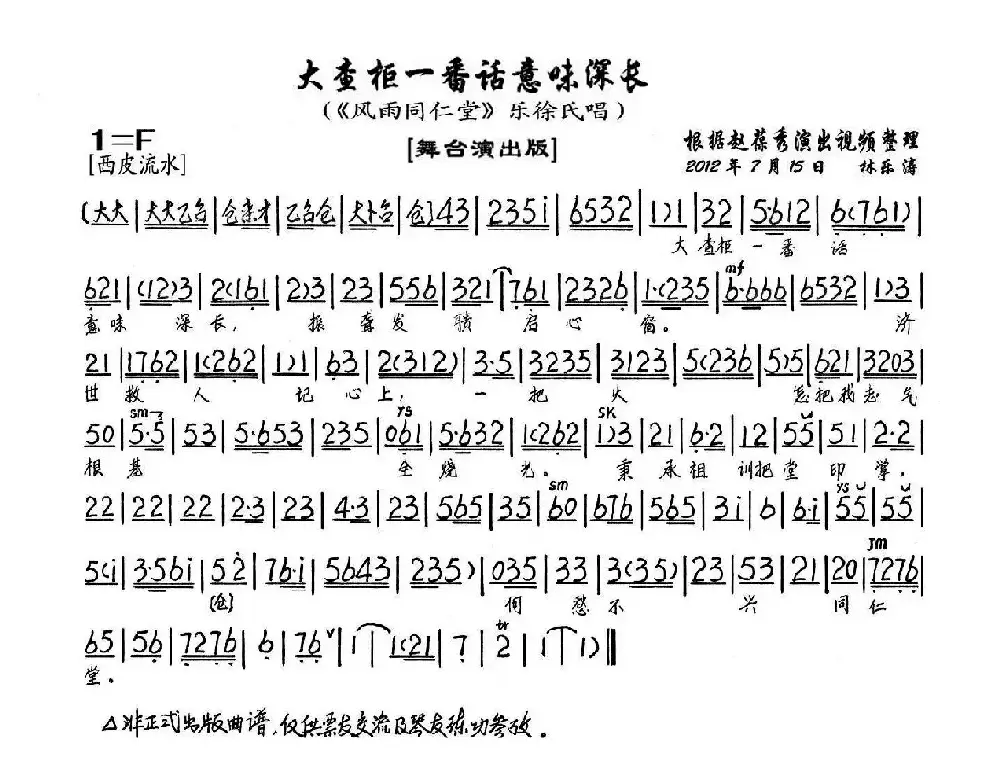 大查柜一番话意味深长
（《风雨同仁堂》乐徐氏唱）
1=F
[西皮流水]
[舞台演出版]
根据赵葆秀演出视频整理
2012年7月15日 林乐涛
(大大|大大乙台|仓来才|乙台仓|大卜台|仓)43|235i|6532|1)1|32|5·612|6(761)|
大 查柜 一番 话
621|(12)3|2(161|2)3|23|556|321|761|2326|1·(235|6·666|6532|1)3|
mf
意味 深 长， 振 聋发 聩 启心 窗。 济
21|1762|1(262|1)1|63|2(312)|3·5|3235|3123|5(236|5)5|621|3203|
世 救 人 记 心上， 一 把 火 怎把我
50|5·5|53|5·653|235|061|5·632|1(262|1)3|21|6·2|12|55|51|2·2|
sm YS SK
根 基 全烧 光。 秉 承祖 训把堂 印 掌。
22|22|22|2·3|23|4·3|23|565|35|60|676|565|3i|6|6·i|55|55|
sm YS
5(i|3·56i|52|76·i|5643|235)|035|33|3(35)|23|53|21|20|7276|
JM
[仓] 何 愁不 兴 同仁
65|56|7276|6|76|1|1(21|7|2|1|1)‖
tr
堂。
△非正式出版曲谱，仅供票友交流及琴友练功参考。